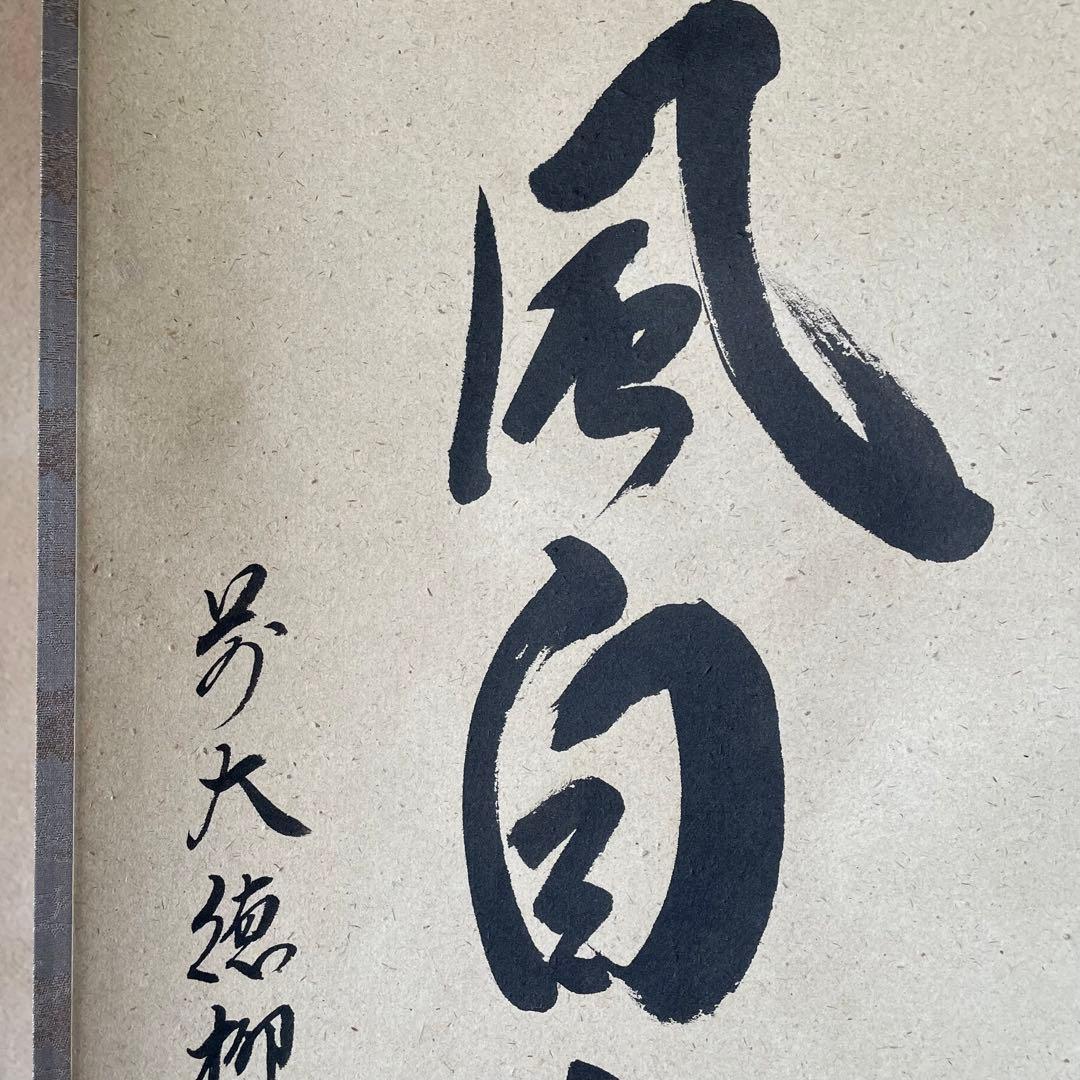 風自
前大徳柳